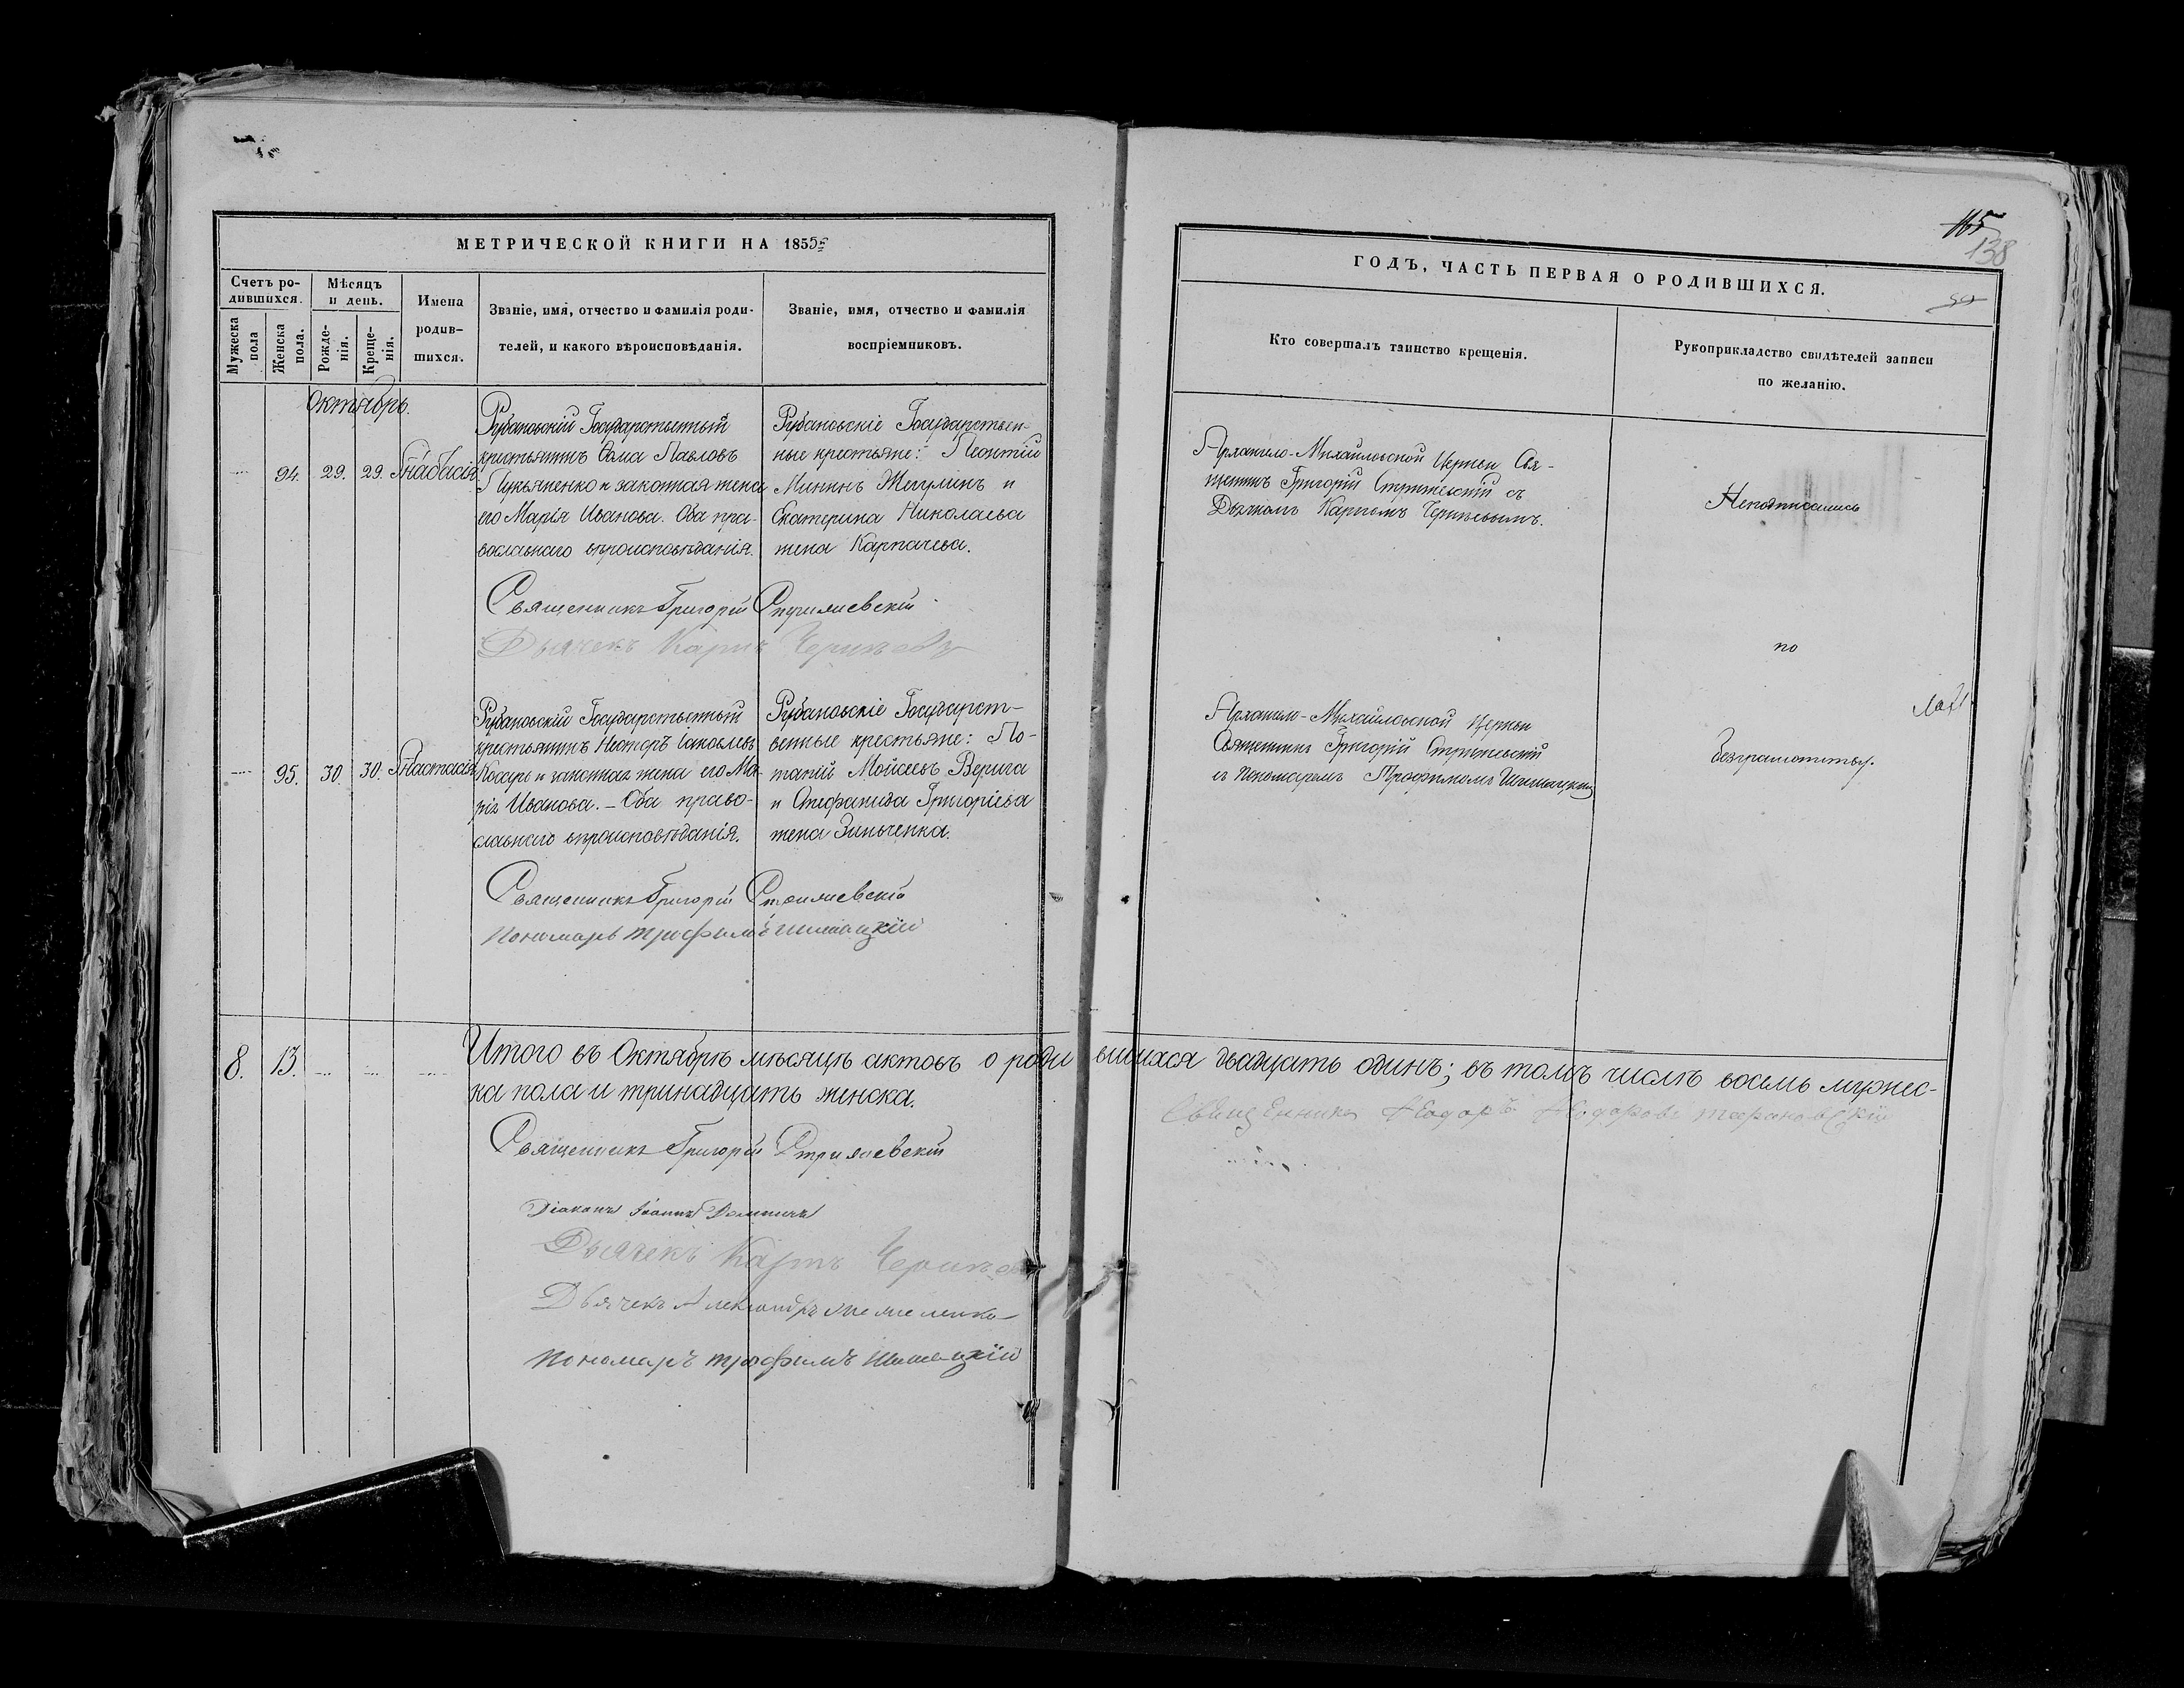 МЕТРИЧЕСКОЙ КНИГИ НА 1855й
Счетъ ро-
дившихся.
Мужеска
пола
Женска
пола.
Мѣсяцъ
и день.
Рожде-
нія.
Креще-
нія.
Имена
родив-
шихся.
Званіе, имя, отчество и фамилія роди-
телей, и какого вѣроисповѣданія.
Званіе, имя, отчество и фамилія
воспріемниковъ.
Октябрь.
94. 29. 29.
Рубановскій Государственный
крестьянинъ Ѳома Павловъ
Лукьяненко и законная жена
его Марія Иванова. Оба пра-
вославнаго вѣроисповѣданія.
Рубановскіе Государствен-
ные крестьяне: Леонтій
Мининъ и
Екатерина Николаева
жена Карпачева.
Священникъ Григорій Стрижевскій
Дьячекъ Карпъ
95. 30. 30. Анастасія
Рубановскій Государственный
крестьянинъ Несторъ Іаковлевъ
Косарь и законная жена его Ма-
рія Иванова. – Оба право-
славнаго вѣроисповѣданія.
Рубановскіе Государст-
венные крестьяне: По-
тапій Мойсеевъ Верига
и Стефанида Григоріева
жена Зинченка.
Священникъ Григорій Стрижевскій
Пономарь Трофимъ Шишацкій
8. 13. Итого въ Октябрѣ мѣсяцѣ актовъ о роди
вшихся двадцать одинъ; въ томъ числѣ восемь мужес-
ка пола и тринадцать женска.
Священникъ Григорій Стрижевскій
Діаконъ Іоаннъ
Дьячекъ Карпъ
Дьячекъ Александръ
Пономарь Трофимъ Шишацкій
115
138
ГОДЪ, ЧАСТЬ ПЕРВАЯ О РОДИВШИХСЯ.
Кто совершалъ таинство крещенія.
Рукоприкладство свидѣтелей записи
по желанію.
Архангело-Михайловской Церкви Свя-
щенникъ Григорій Стрижевскій съ
Дьячкомъ Карпомъ
Неподписались
по
Архангело-Михайловской Церкви
Священникъ Григорій Стрижевскій
съ пономаремъ Трофимомъ Шишацкимъ
безграмотству.
Священникъ Ѳеодоръ